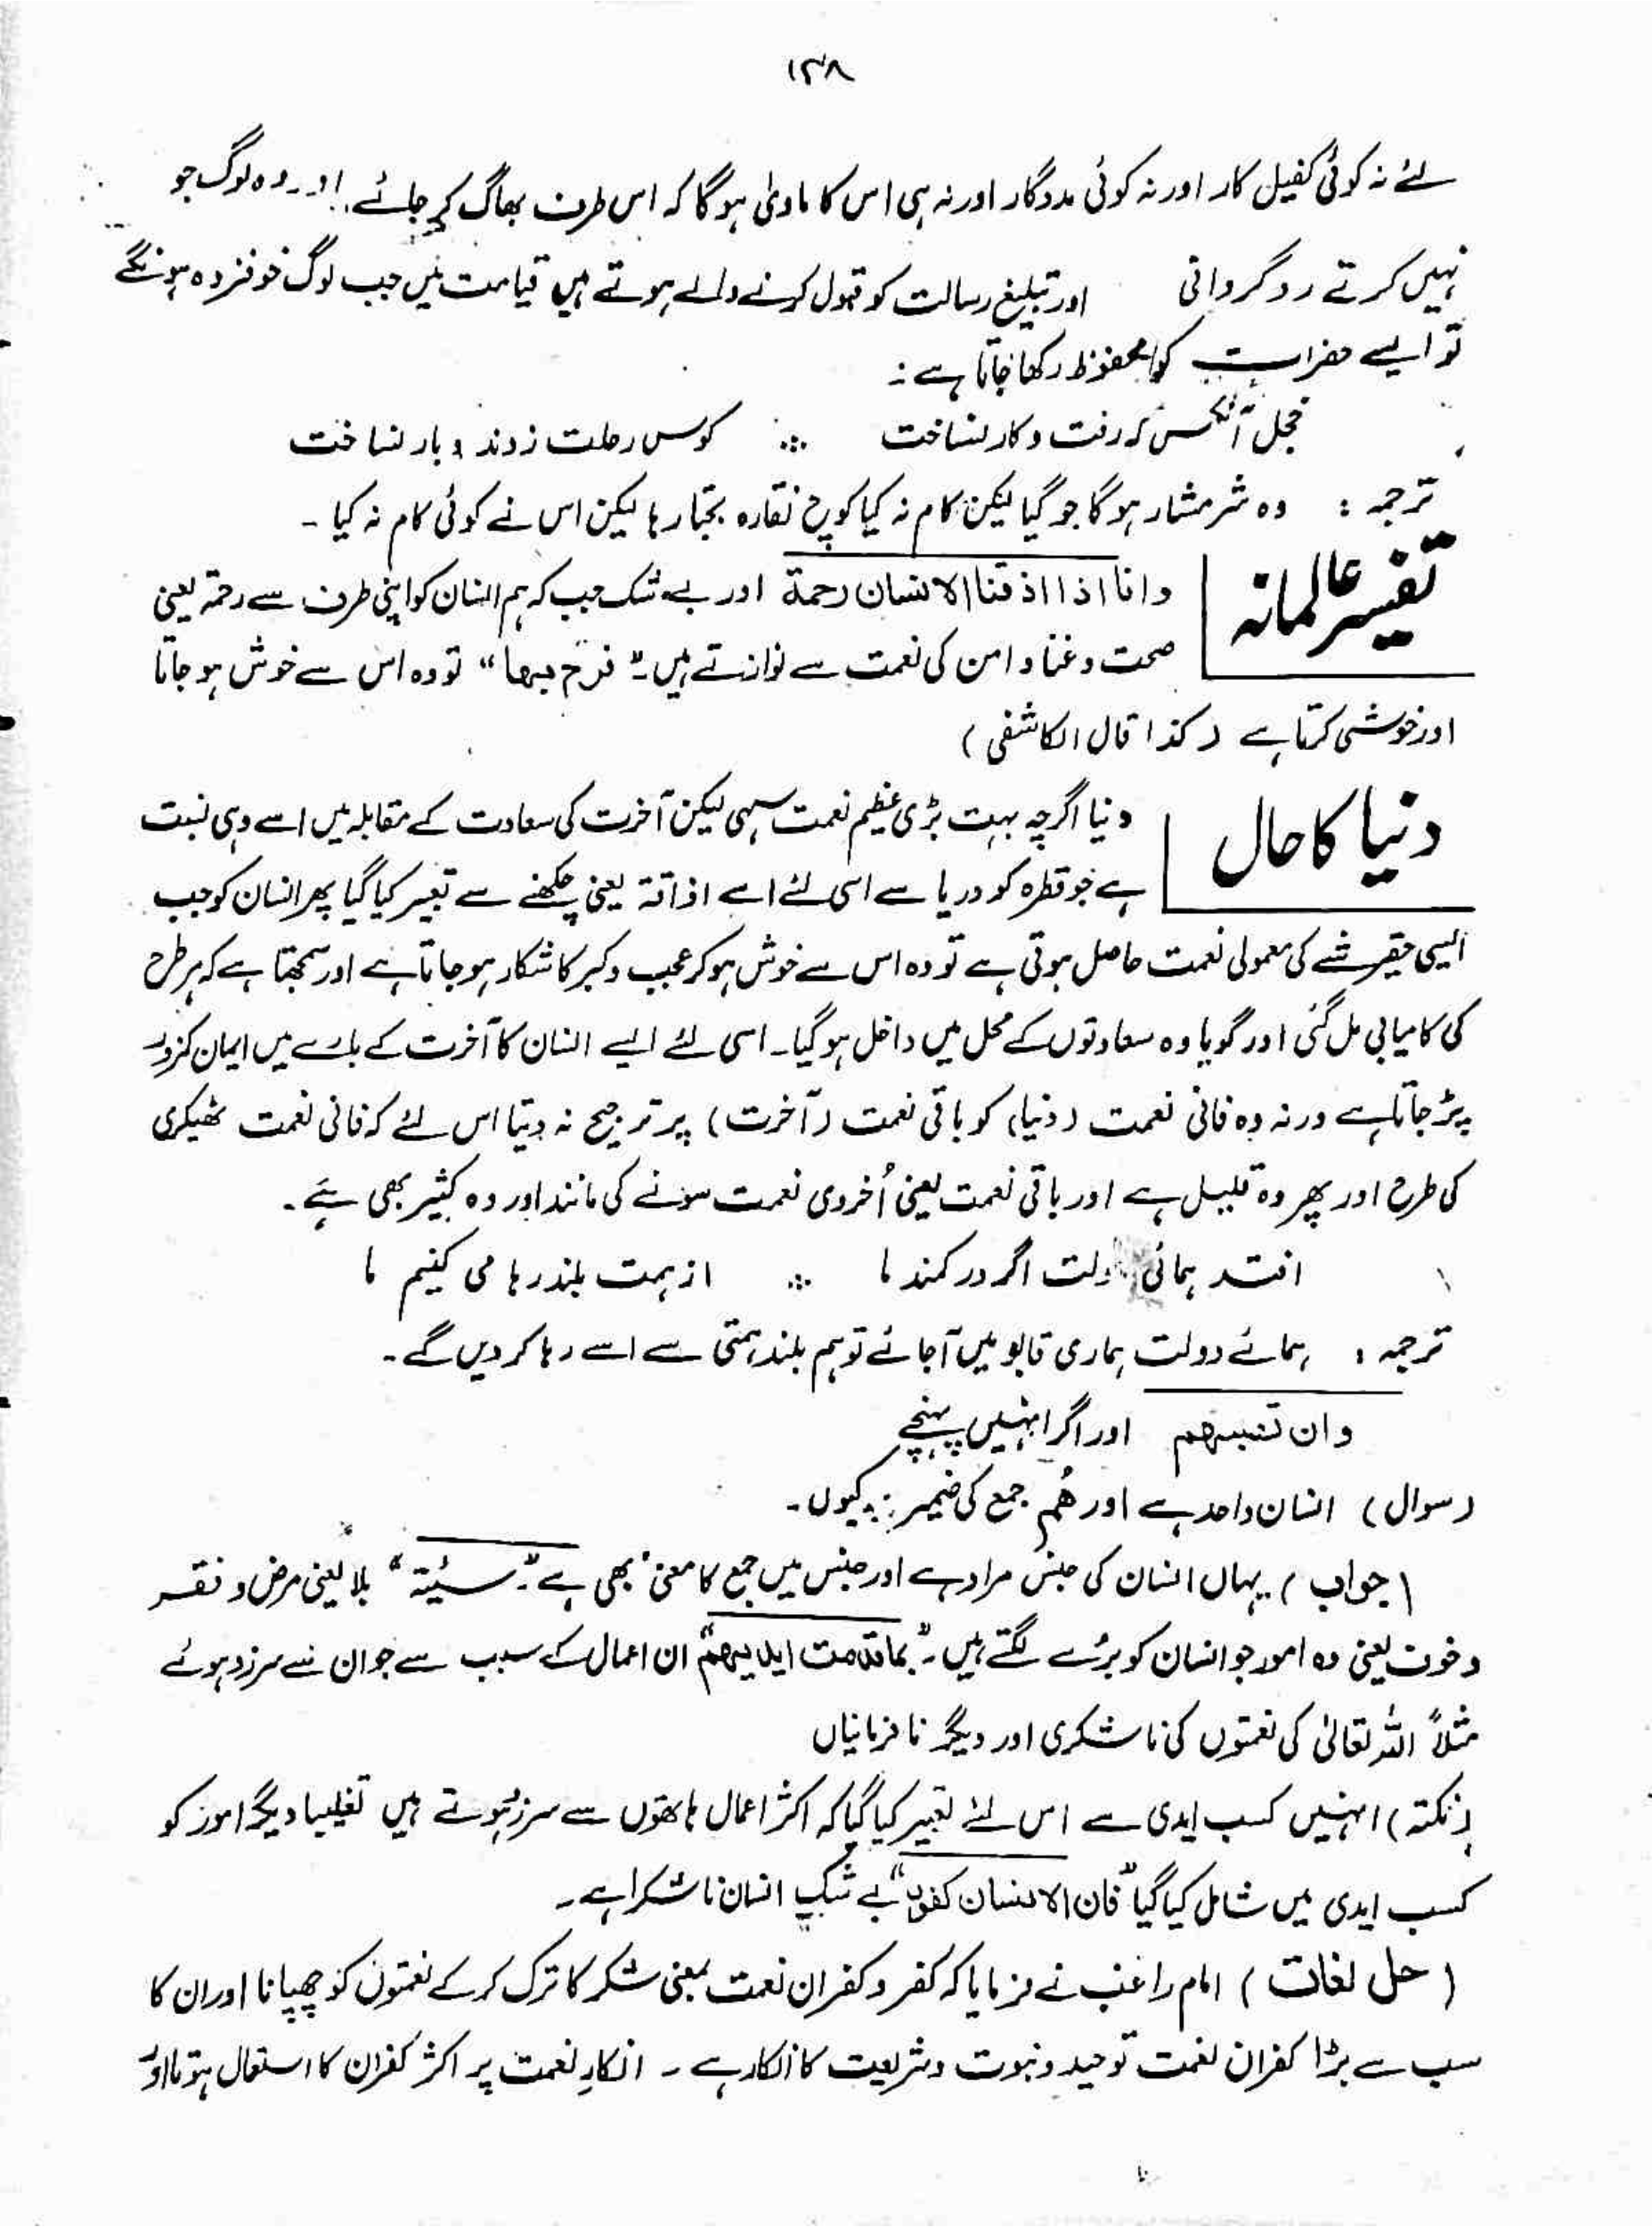 ۱۳۸
لئے نہ کوئی کفیل کار اور نہ کوئی مددگار اور نہ ہی اس کا ماویٰ ہوگا کہ اس طرف بھاگ کر جائے۔ اور وہ لوگ جو
نہیں کرتے روگردانی اور تبلیغ رسالت کو قبول کرنے والے ہوتے ہیں قیامت میں جب لوگ خوفزدہ ہونگے
تو ایسے حضرات کو محفوظ رکھا جاتا ہے :
خجل آنکس کہ رفت و کار نساخت ∴ کوس رحلت زدند و بار نساخت
ترجمہ : وہ شرمشار ہوگا جو گیا لیکن کام نہ کیا کوچ نقارہ بجتا رہا لیکن اس نے کوئی کام نہ کیا ۔
تفسیر عالمانہ
وانا اذا اذقنا الانسان رحمة اور بے شک جب کہ ہم انسان کو اپنی طرف سے رحمۃ یعنی
صحت و غنا و امن کی نعمت سے نوازتے ہیں۔ " فرح بھا " تو وہ اس سے خوش ہو جاتا
اور خوشی کرتا ہے ( کذا قال الکاشفی )
دنیا کا حال
دنیا اگرچہ بہت بڑی عظیم نعمت سہی لیکن آخرت کی سعادت کے مقابلہ میں اسے وہی نسبت
ہے جو قطرہ کو دریا سے اسی لئے اسے اذاقۃ یعنی چکھنے سے تعبیر کیا گیا پھر انسان کو جب
ایسی حقیر شے کی معمولی نعمت حاصل ہوتی ہے تو وہ اس سے خوش ہو کر عجب و کبر کا شکار ہو جاتا ہے اور سمجھتا ہے کہ ہر طرح
کی کامیابی مل گئی اور گویا وہ سعادتوں کے محل میں داخل ہوگیا۔ اسی لئے ایسے انسان کا آخرت کے بارے میں ایمان کمزور
پڑ جاتا ہے ورنہ وہ فانی نعمت (دنیا) کو باقی نعمت (آخرت) پر ترجیح نہ دیتا اس لئے کہ فانی نعمت ٹھیکری
کی طرح اور پھر وہ قلیل ہے اور باقی نعمت یعنی اُخروی نعمت سونے کی مانند اور وہ کثیر بھی ہے۔
افتد ہمائی دولت اگر در کمند ما ∴ از ہمت بلند رہا می کنیم ما
ترجمہ : ہمائے دولت ہماری قابو میں آجائے تو ہم بلند ہمتی سے اسے رہا کر دیں گے۔
وان تصبهم اور اگر انہیں پہنچے
(سوال) انسان واحد ہے اور ھُم جمع کی ضمیر کیوں۔
(جواب) یہاں انسان کی جنس مراد ہے اور جنس میں جمع کا معنیٰ بھی ہے۔ " سیئة " بلا یعنی مرض و فقر
و خوف یعنی وہ امور جو انسان کو بُرے لگتے ہیں۔ " بما قدمت ایدیهم " ان اعمال کے سبب سے جو ان سے سرزد ہوئے
مثلاً اللہ تعالیٰ کی نعمتوں کی ناشکری اور دیگر نافرمانیاں
(نکتہ) انہیں کسب ایدی سے اس لئے تعبیر کیا گیا کہ اکثر اعمال ہاتھوں سے سرزد ہوتے ہیں تغلیبا دیگر امور کو
کسب ایدی میں شامل کیا گیا " فان الانسان کفور " بے شک انسان ناشکرا ہے۔
( حل لغات ) امام راغب نے فرمایا کہ کفر و کفران نعمت بمعنی شکر کا ترک کر کے نعمتوں کو چھپانا اور ان کا
سب سے بڑا کفران نعمت توحید و نبوت و شریعت کا انکار ہے ۔ انکارِ نعمت پر اکثر کفران کا استعمال ہوتا اور